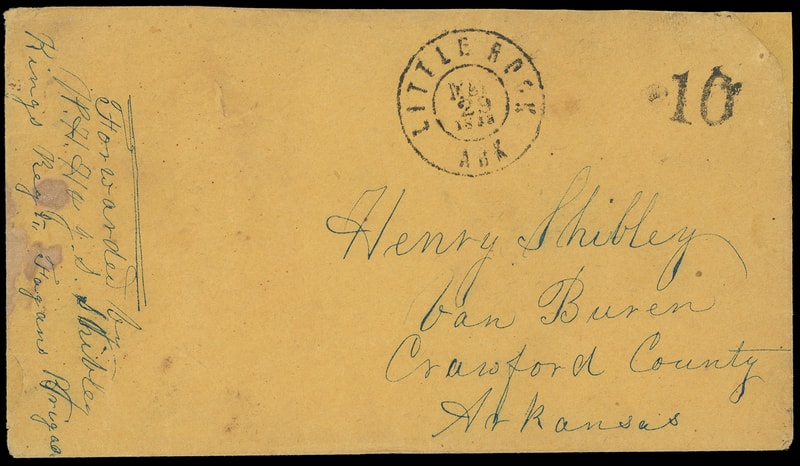 LITTLE ROCK
MAY
29
1863
ARK
10
Henry Shibley
Van Buren
Crawford County
Arkansas
Forwarded by
W.H.H. & J.S. Shibley
Kings Regt, Fagans Brigade